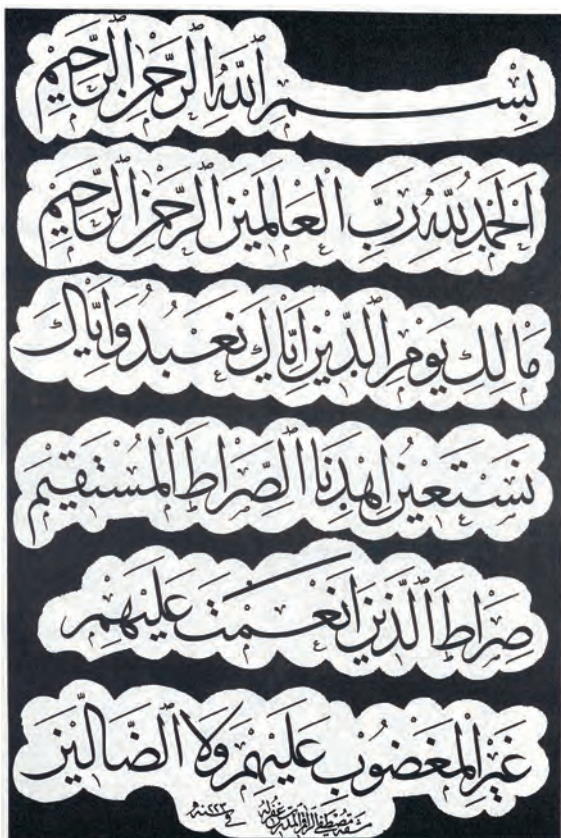 بِسْمِ اللهِ الرَّحْمٰنِ الرَّحِيْمِ
اَلْحَمْدُ لِلّٰهِ رَبِّ الْعَالَمِيْنَ الرَّحْمٰنِ الرَّحِيْمِ
مَالِكِ يَوْمِ الدِّيْنِ اِيَّاكَ نَعْبُدُ وَاِيَّاكَ
نَسْتَعِيْنُ اِهْدِنَا الصِّرَاطَ الْمُسْتَقِيْمَ
صِرَاطَ الَّذِيْنَ اَنْعَمْتَ عَلَيْهِمْ
غَيْرِ الْمَغْضُوْبِ عَلَيْهِمْ وَلَا الضَّالِّيْنَ
مصطفى الراقم غفر له